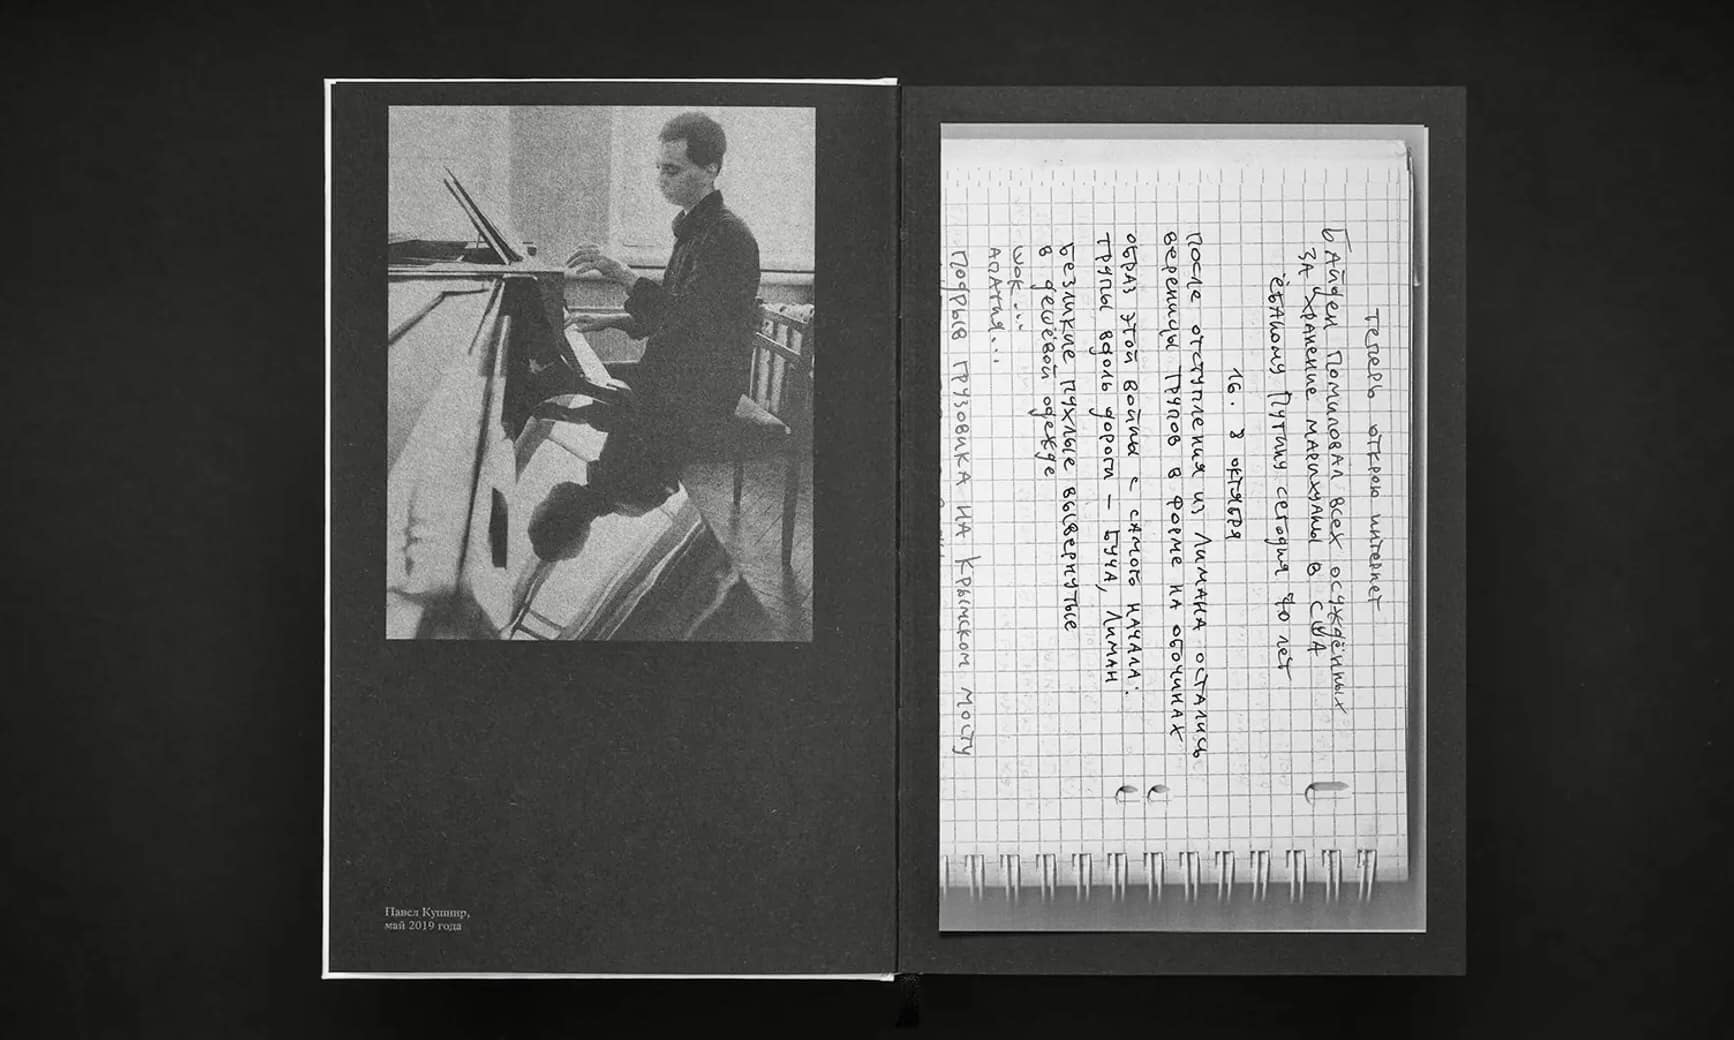 Павел Кушнир,
май 2019 года
теперь открою интернет
Байден помиловал всех осуждённых
за хранение марихуаны в США
ёбаному Путину сегодня 70 лет
16. 8 октября
после отступления из Лимана остались
вереницы трупов в форме на обочинах
образ этой войны с самого начала:
трупы вдоль дороги — Буча, Лиман
безликие пухлые вывернутые
в дешёвой одежде
шок...
апатия...
подрыв грузовика на Крымском мосту